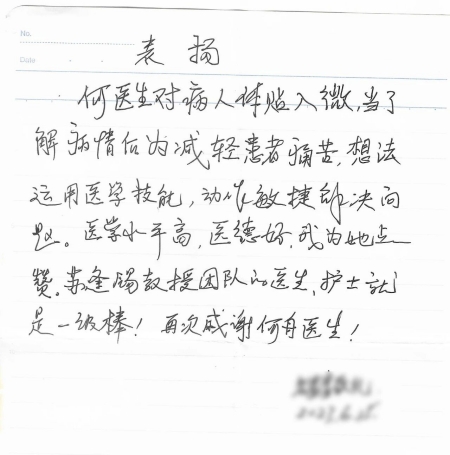 No.
Date
表扬
何医生对病人体贴入微,当了
解病情后为减轻患者痛苦,想法
运用医学技能,动作敏捷解决问
题。医学水平高,医德好,我为她点
赞。苏逢锡教授团队的医生、护士就
是一级棒!再次感谢何丹医生!